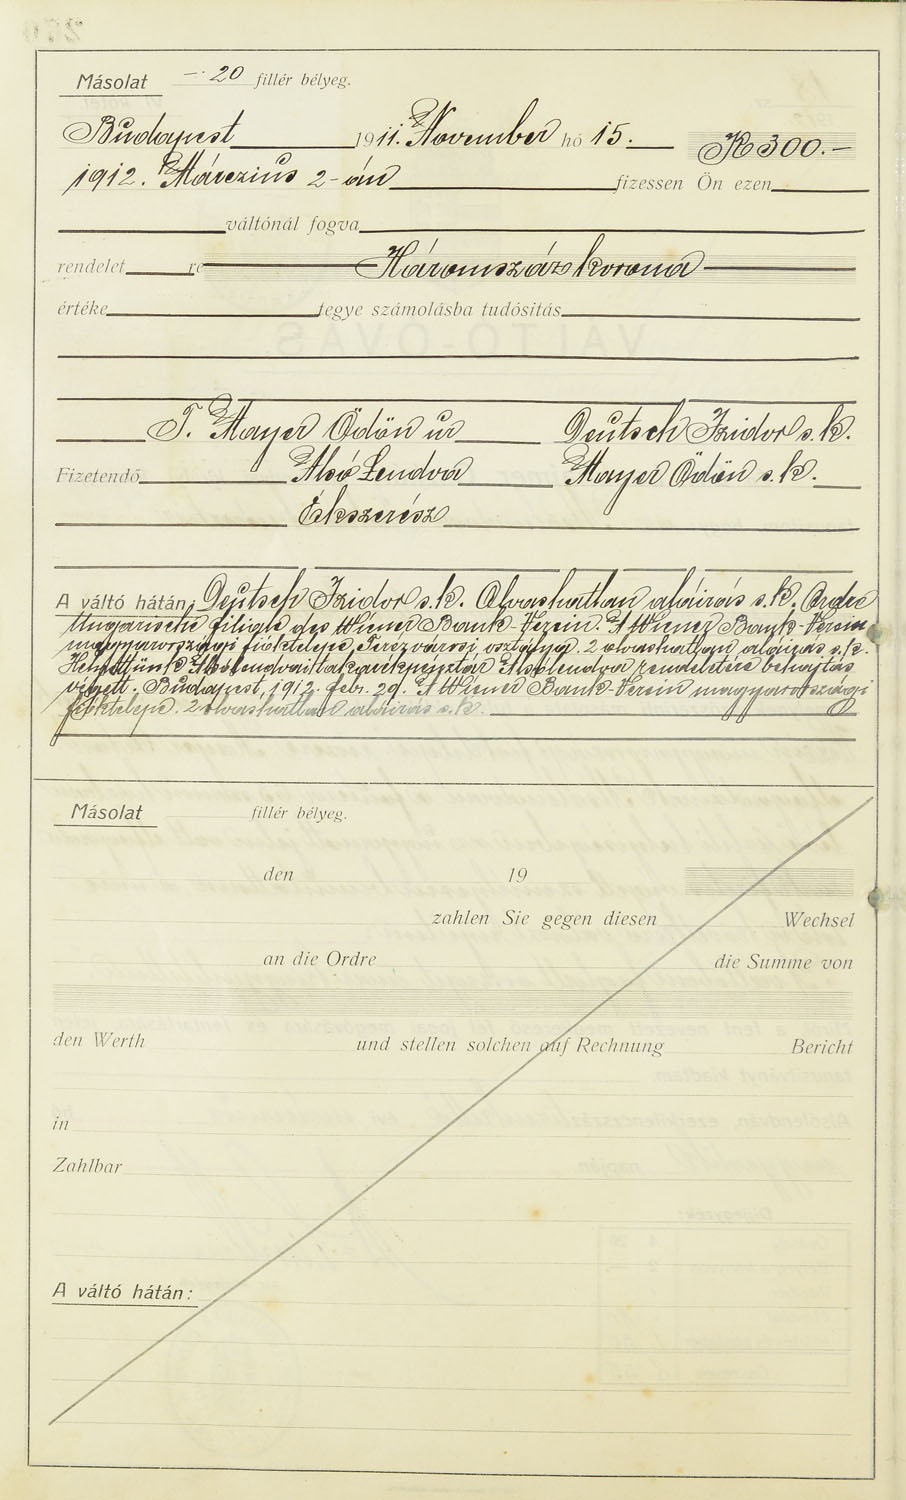 Másolat —·20 fillér bélyeg.
Budapest 1911. November hó 15. K 300.—
1912. Márczius 2-án fizessen Ön ezen
váltónál fogva
rendelet re Háromszáz korona
értéke tegye számolásba tudósitás
T. Mayer Ödön ur Deutsch Izidor s.k.
Fizetendő Alsó Lendva Mayer Ödön s.k.
Ékszerész
A váltó hátán: Deutsch Izidor s.k. Olvashatlan aláirás s.k. Ordre
Ungarische filiale des Wiener Bank-Verein. A Wiener Bank-Verein
magyarországi fióktelepe, Terézvárosi osztálya. 2 olvashatlan aláirás s.k.
Helyettünk Alsólendvai takarékpénztár Alsólendva rendeletére behajtás
végett. Budapest, 1912. febr. 29. A Wiener Bank-Verein magyarországi
fióktelepe. 2 olvashatlan aláirás s.k.
Másolat fillér bélyeg.
den 19
zahlen Sie gegen diesen Wechsel
an die Ordre die Summe von
den Werth und stellen solchen auf Rechnung Bericht
in
Zahlbar
A váltó hátán: